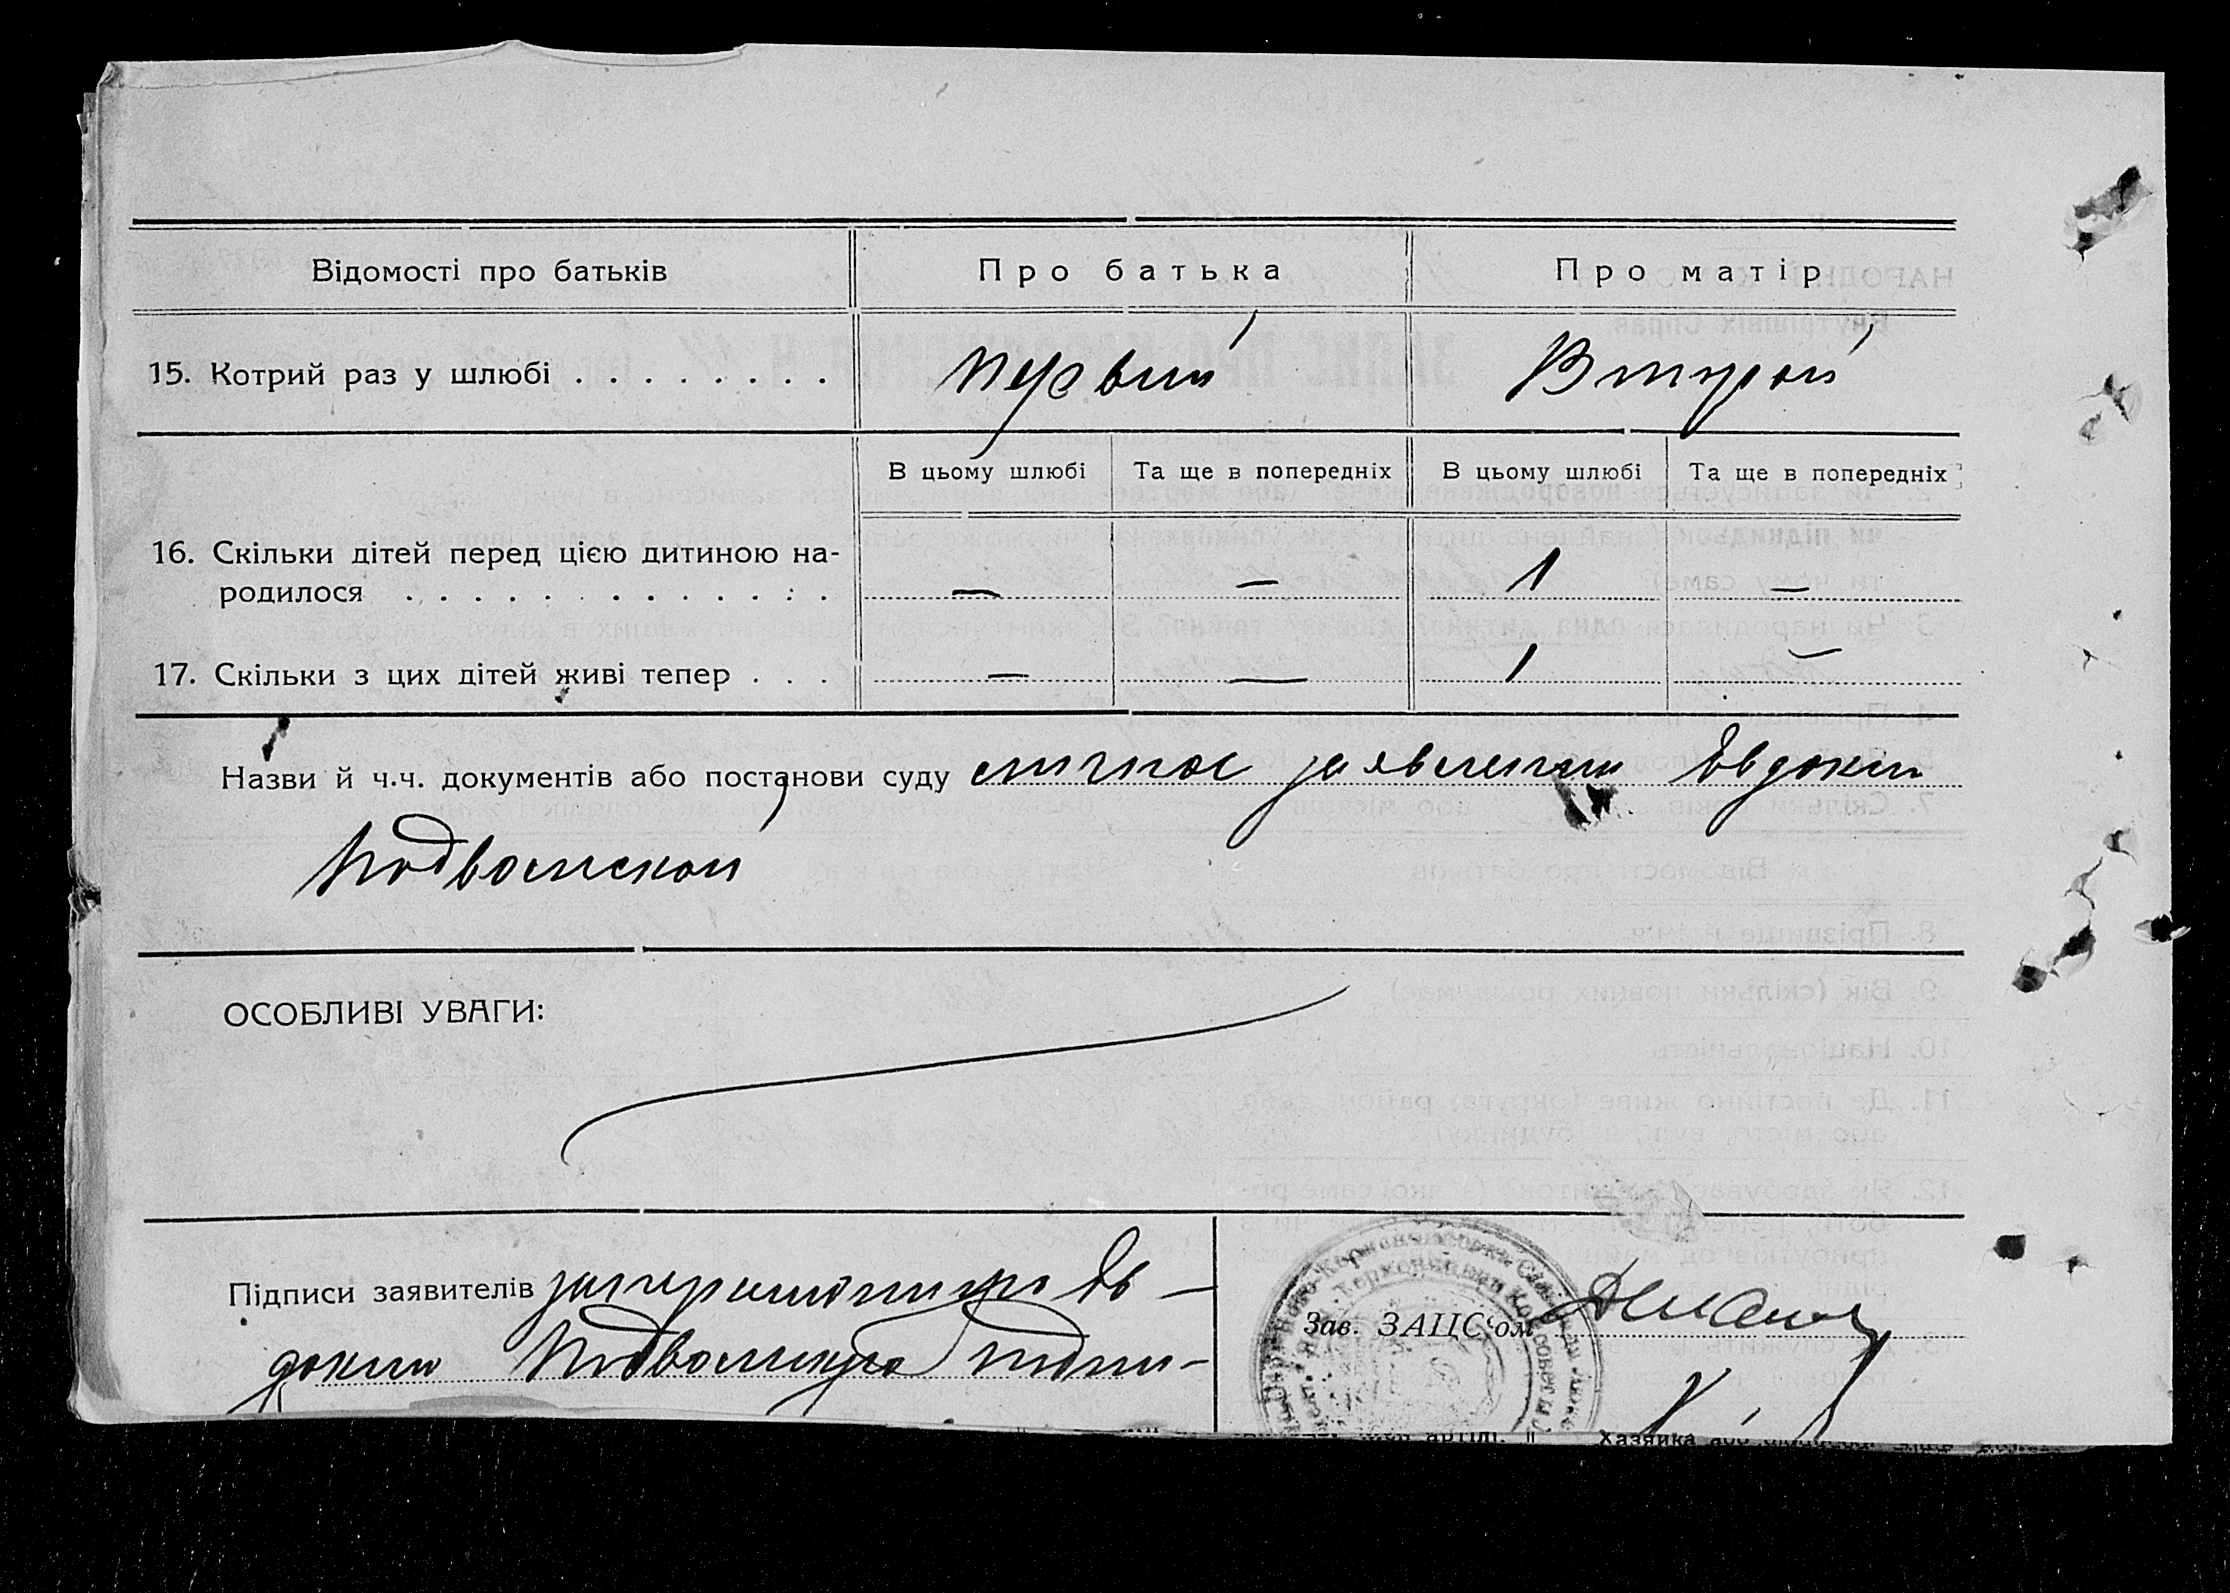 Відомості про батьків Про батька Про матір
15. Котрий раз у шлюбі . . . . . . . . Первий Вторий
В цьому шлюбі Та ще в попередніх В цьому шлюбі Та ще в попередніх
16. Скільки дітей перед цією дитиною на-
родилося . . . . . . . . . . . . . — — 1 —
17. Скільки з цих дітей живі тепер . . . — — 1 —
Назви й ч.ч. документів або постанови суду личное заявлении Евдокии
Подвальской
ОСОБЛИВІ УВАГИ:
Підписи заявителів Ев —
докию Подвальскую
Зав. ЗАЦС'ом